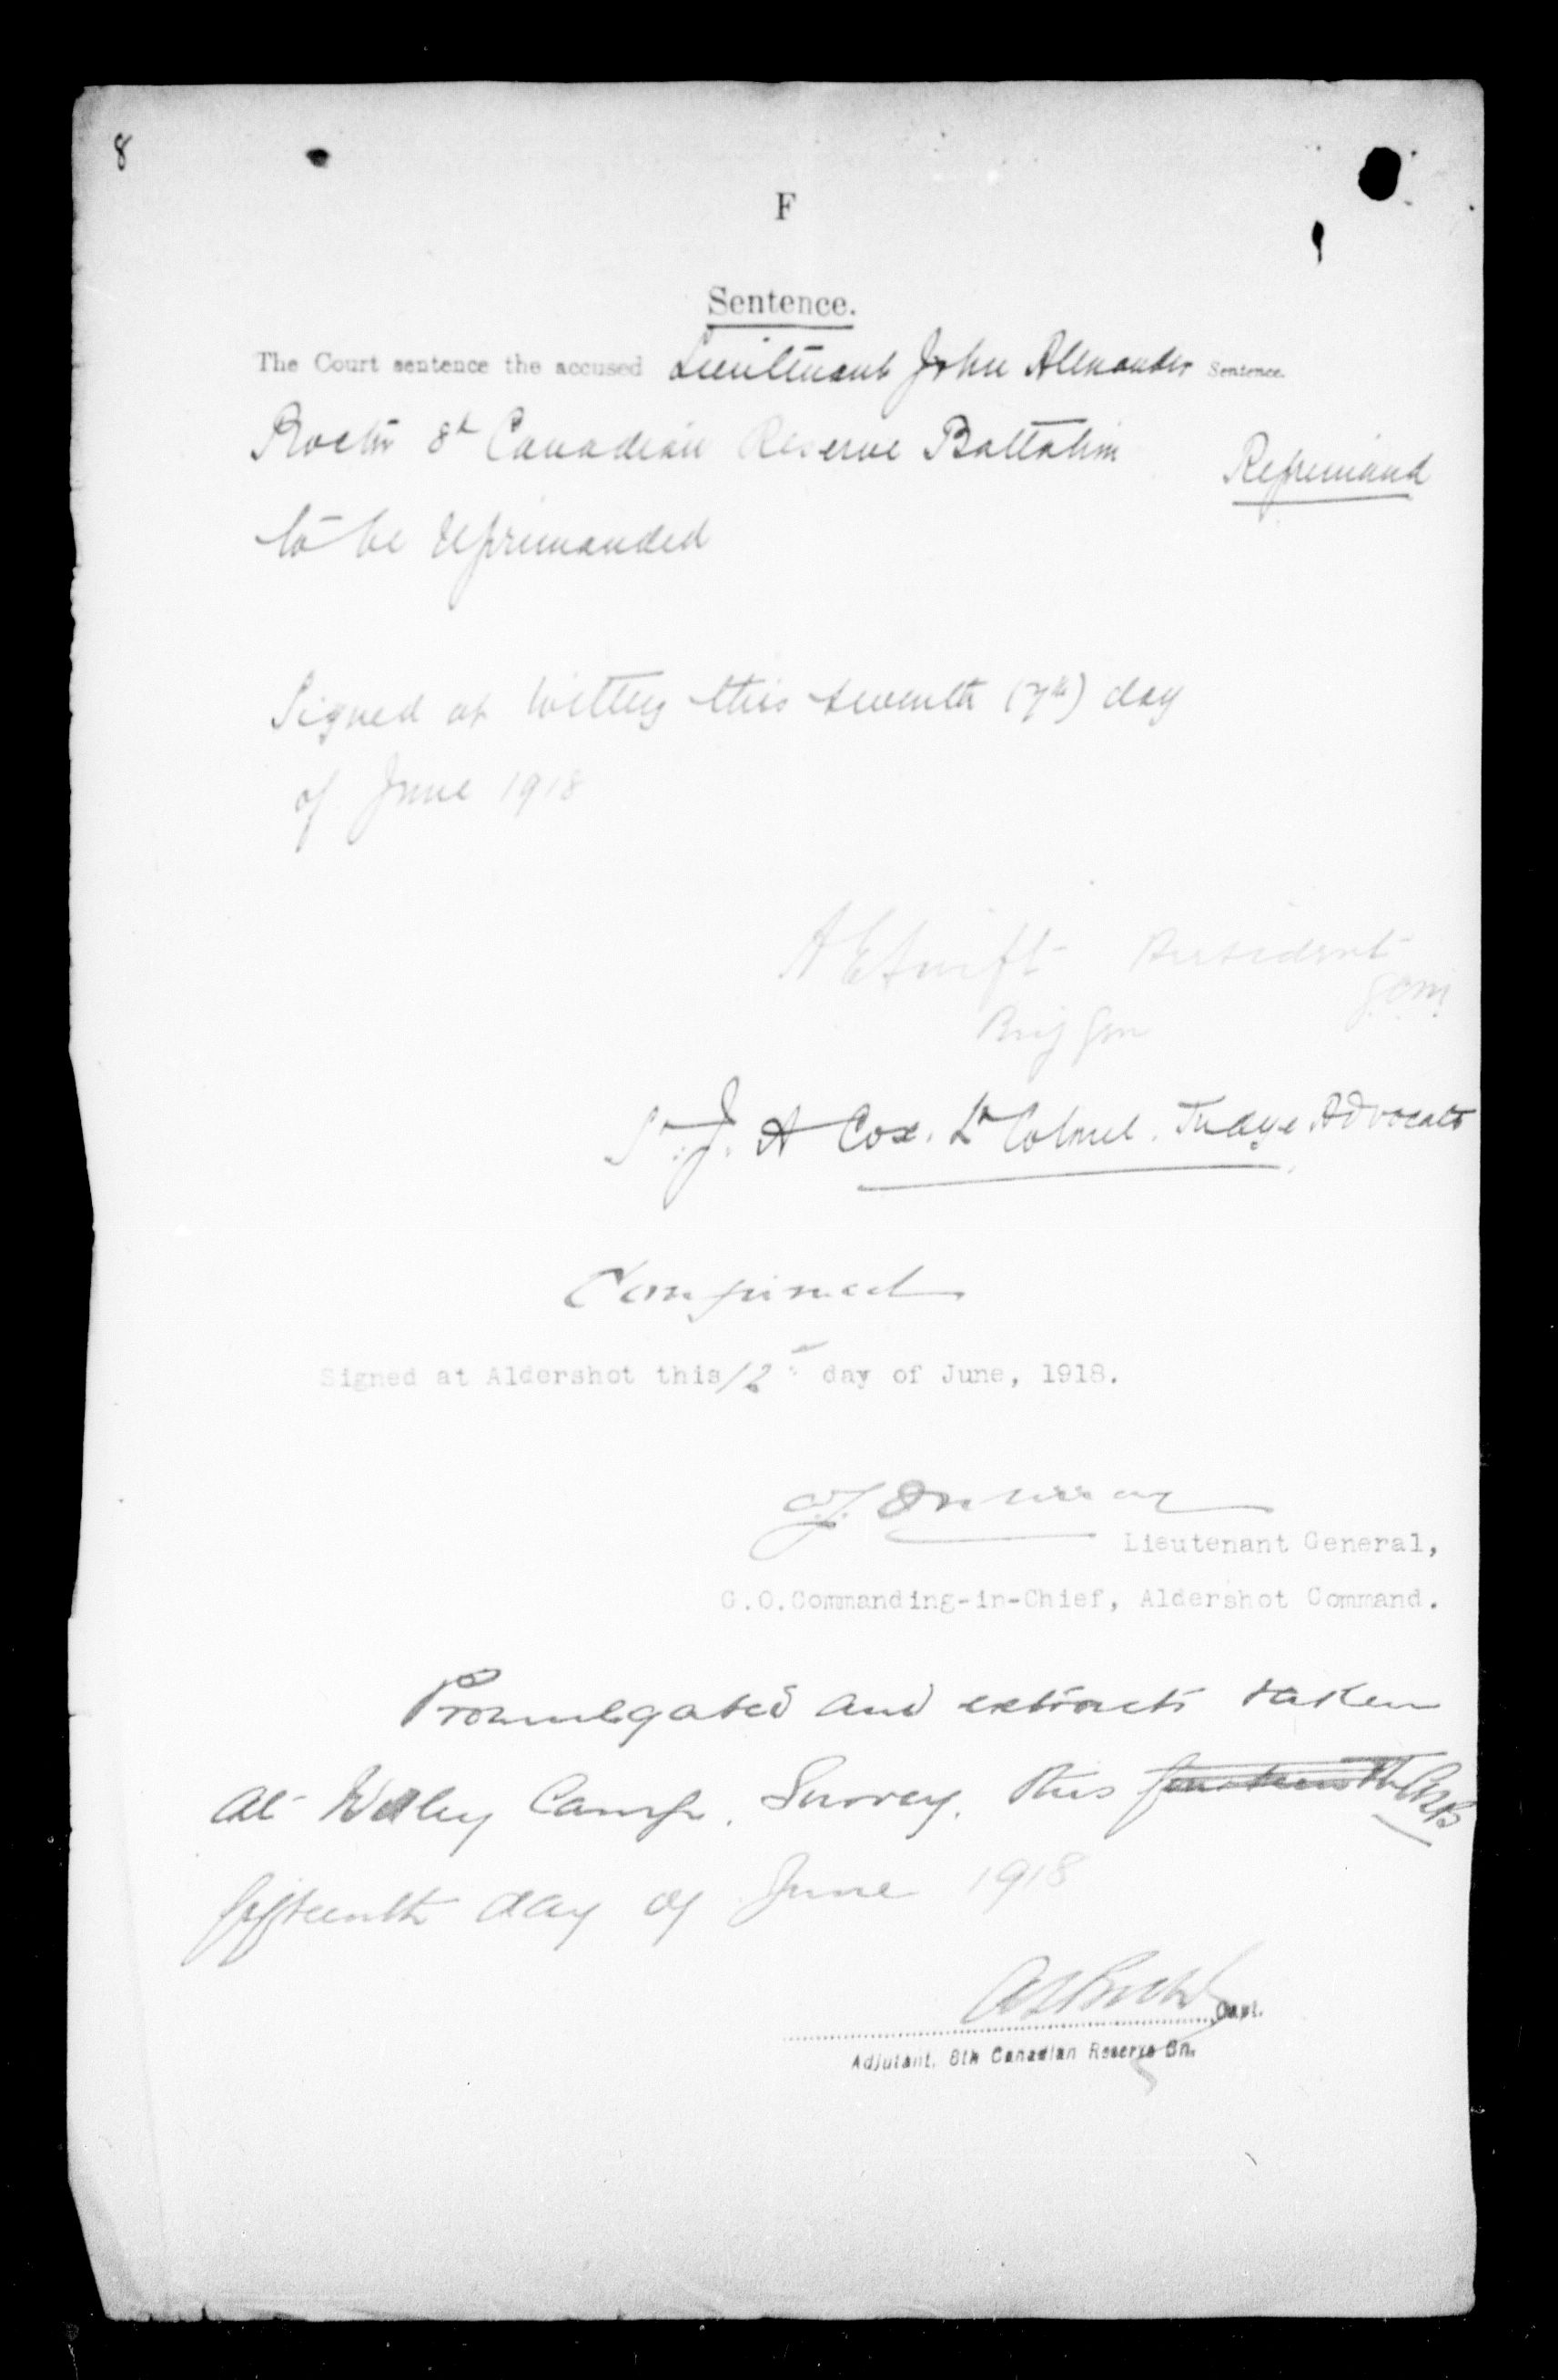 8
F
Sentence.
The Court sentence the accused Lieutenant John Alexander Sentence.
Proctor 8th Canadian Reserve Battalion
Reprimand
to be reprimanded
Signed at Witley this seventh (7th) day
of June 1918
A E Swift President
G.C.M.
Brig Gen
St. J. A Cox. Lt Colonel. Judge Advocate
Confirmed
Signed at Aldershot this 12th day of June, 1918.
Lieutenant General,
G.O.Commanding-in-Chief, Aldershot Command.
Promulgated and extracts taken
at Witley Camp. Surrey. this fourteenth
fifteenth day of June 1918
Capt.
Adjutant. 8th Canadian Reserve Bn.